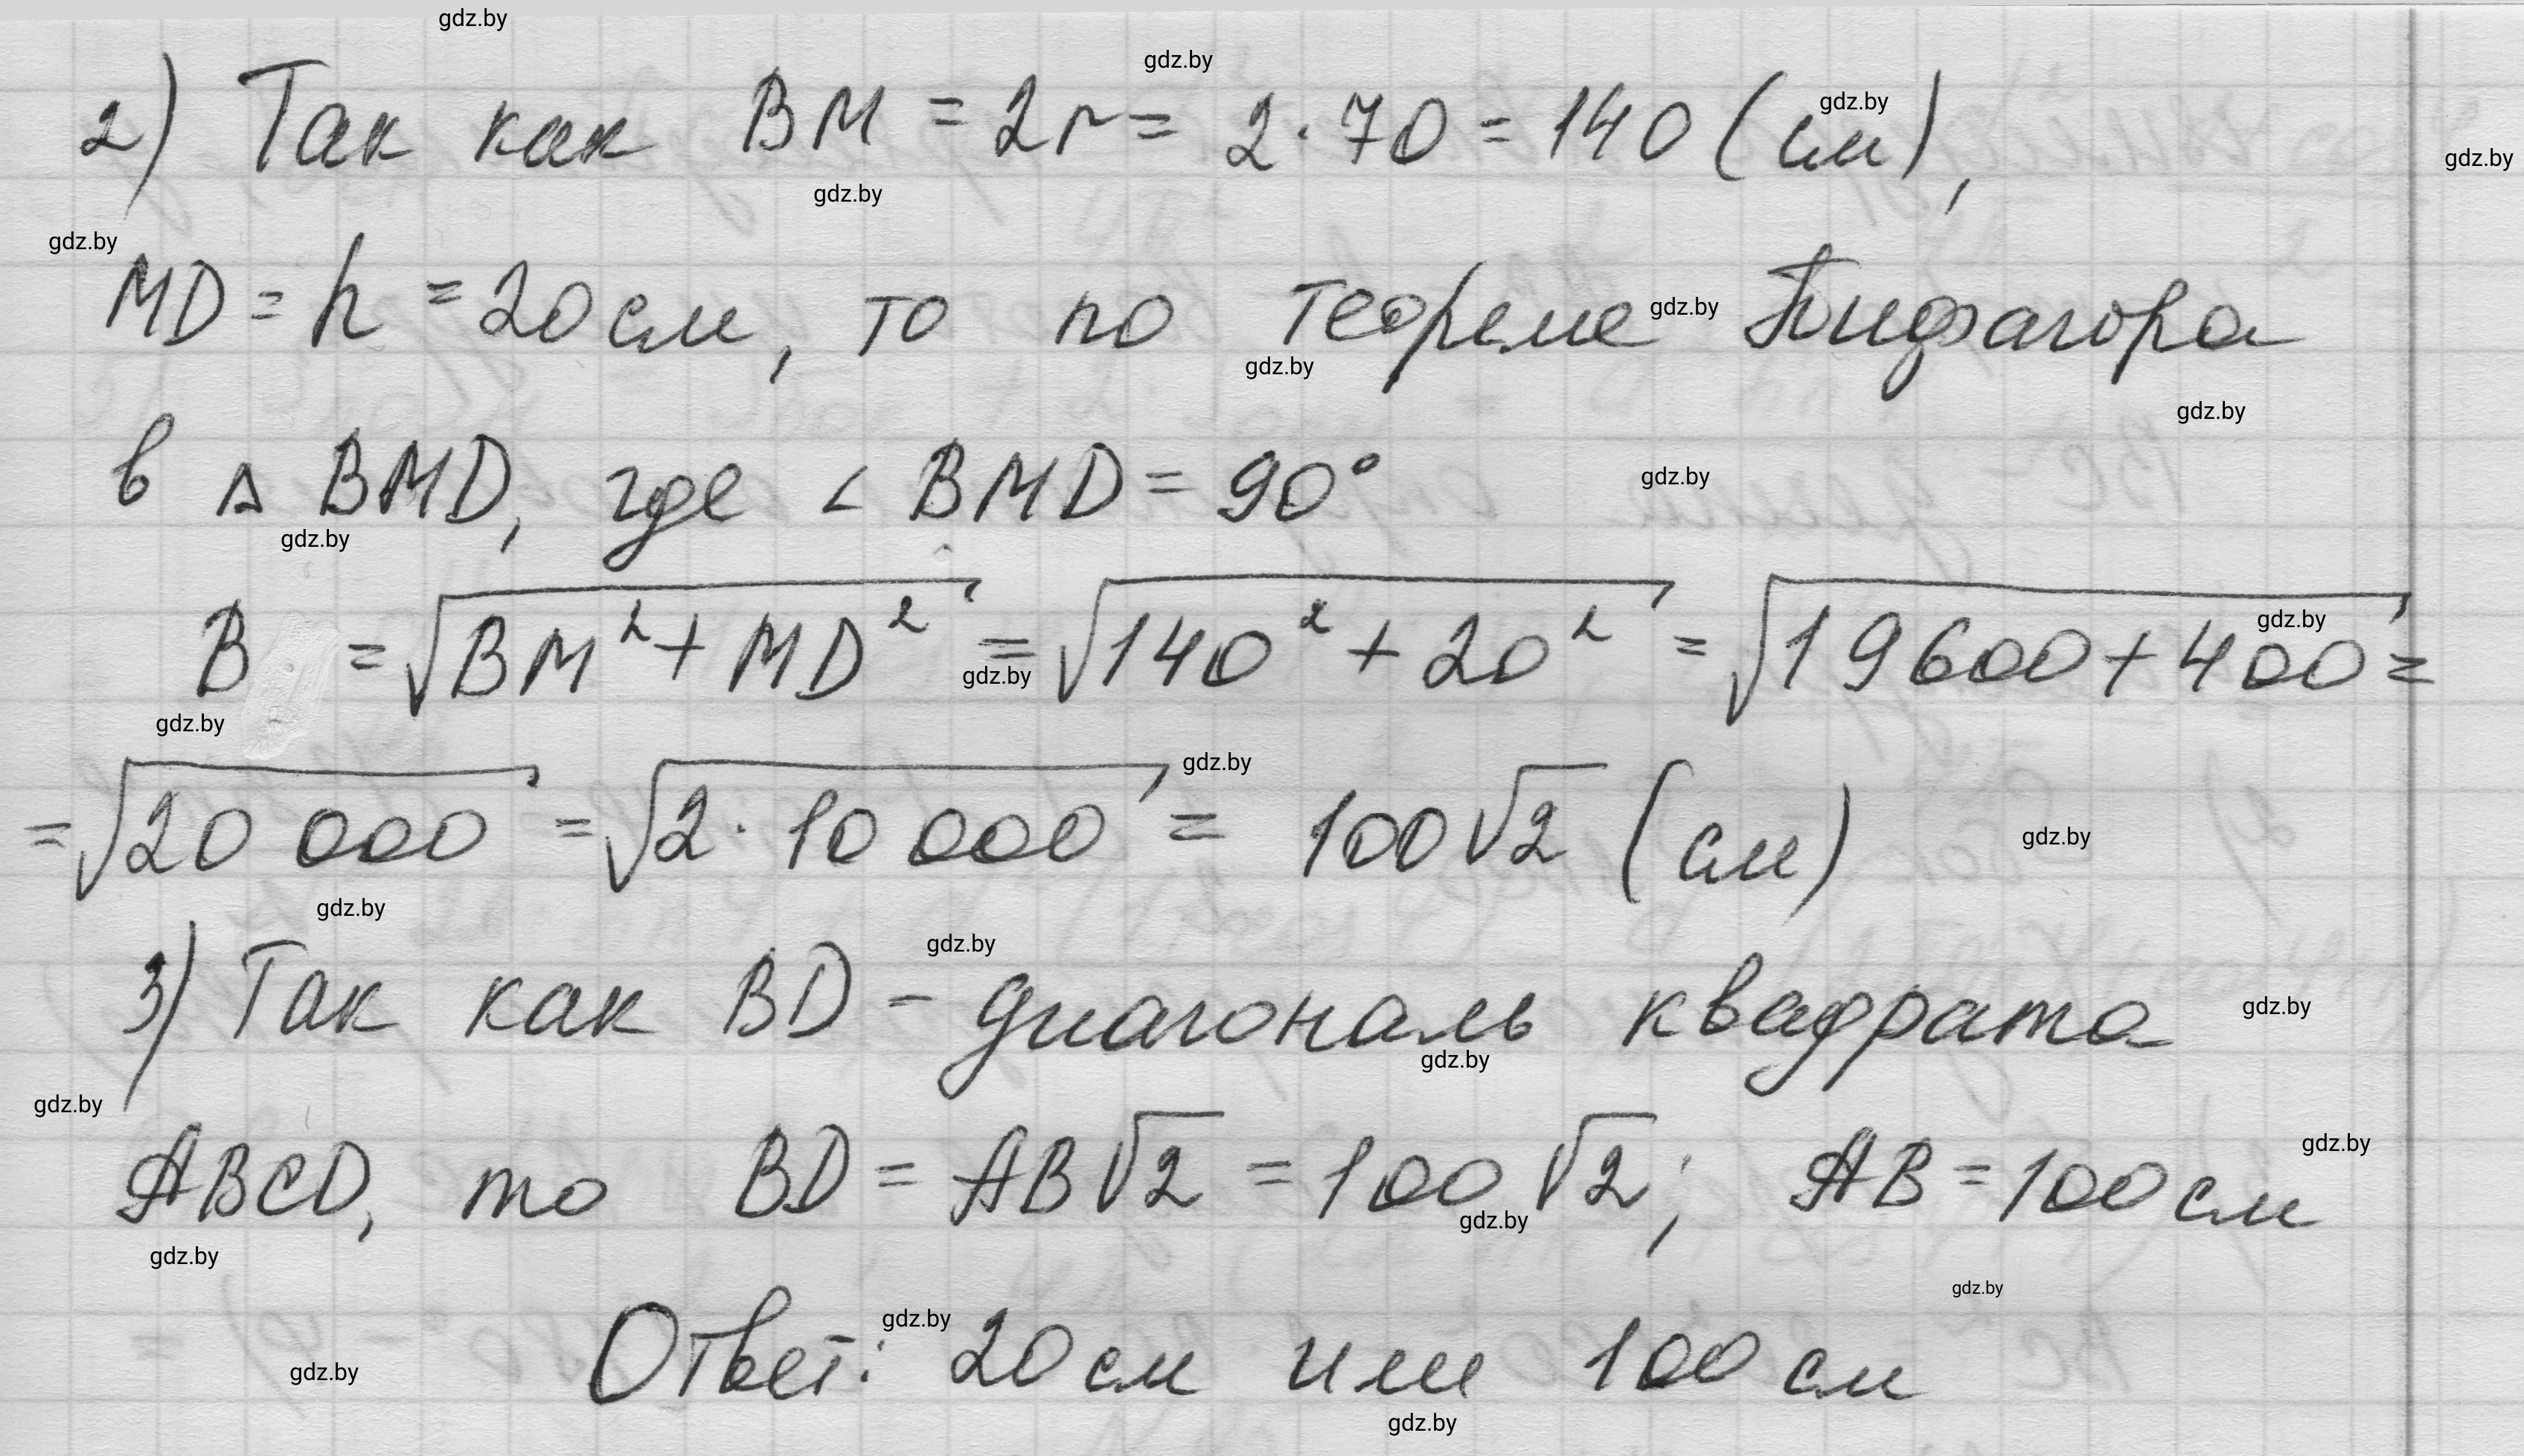 2) Так как BM = 2r = 2·70 = 140 (см),
MD = h = 20 см, то по теореме Пифагора
в △ BMD, где ∠ BMD = 90°
B = √(BM² + MD²) = √(140² + 20²) = √(19600 + 400) =
= √(20 000) = √(2·10 000) = 100√2 (см)
3) Так как BD – диагональ квадрата
ABCD, то BD = AB√2 = 100√2; AB = 100 см
Ответ: 20 см или 100 см
gdz.by